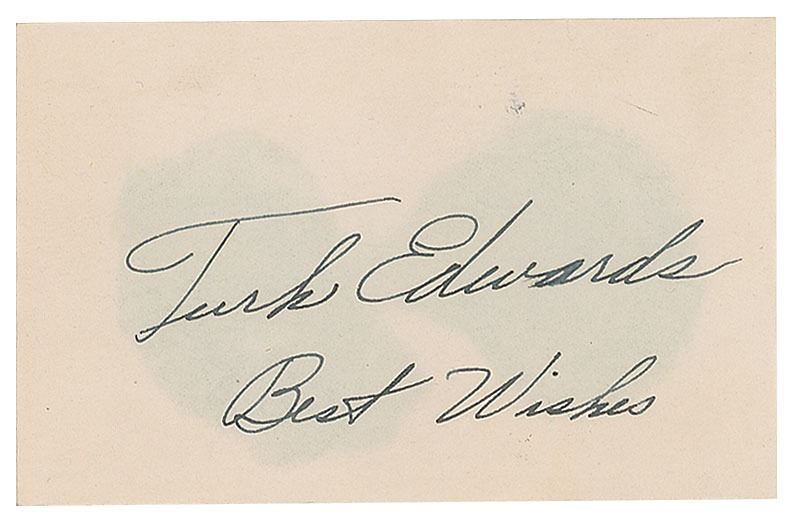 Turk Edwards
Best Wishes